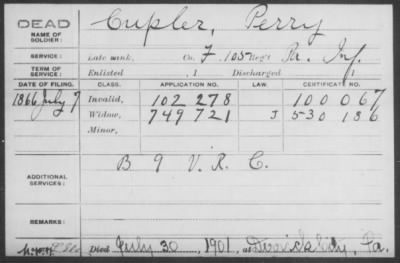 DEAD
NAME OF SOLDIER:
Cupler, Perry
SERVICE:
Late rank, Co. F. 105 Reg't Pa. Inf.
TERM OF SERVICE:
Enlisted , 1 Discharged , 1
DATE OF FILING. CLASS. APPLICATION NO. LAW. CERTIFICATE NO.
1866 July 7 Invalid, 102 278 100 067
Widow, 749 721 J 530 186
Minor,
ADDITIONAL SERVICES:
B 9 V. R. C.
REMARKS:
Died July 30, 1901, at Derrick City, Pa.